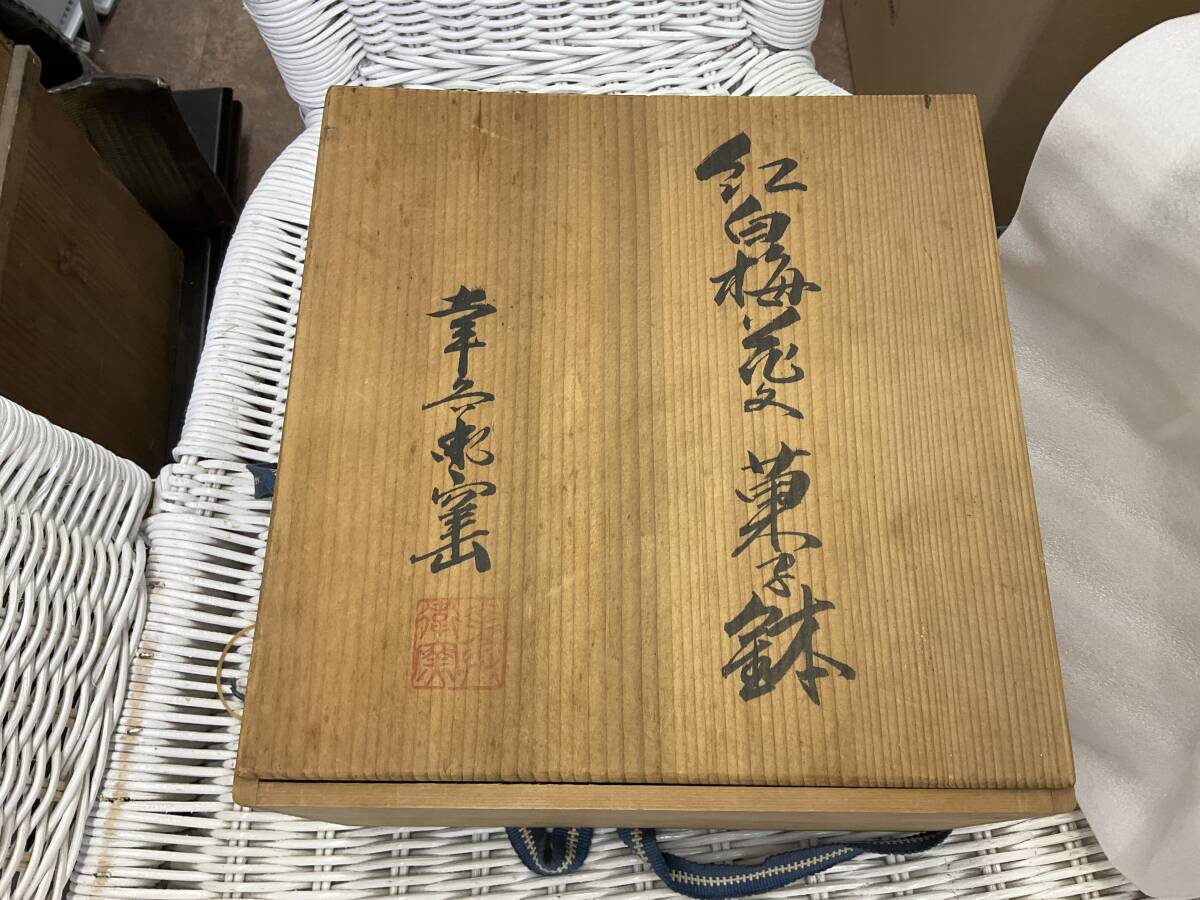 紅白梅花文 菓子鉢
幸兵衛窯